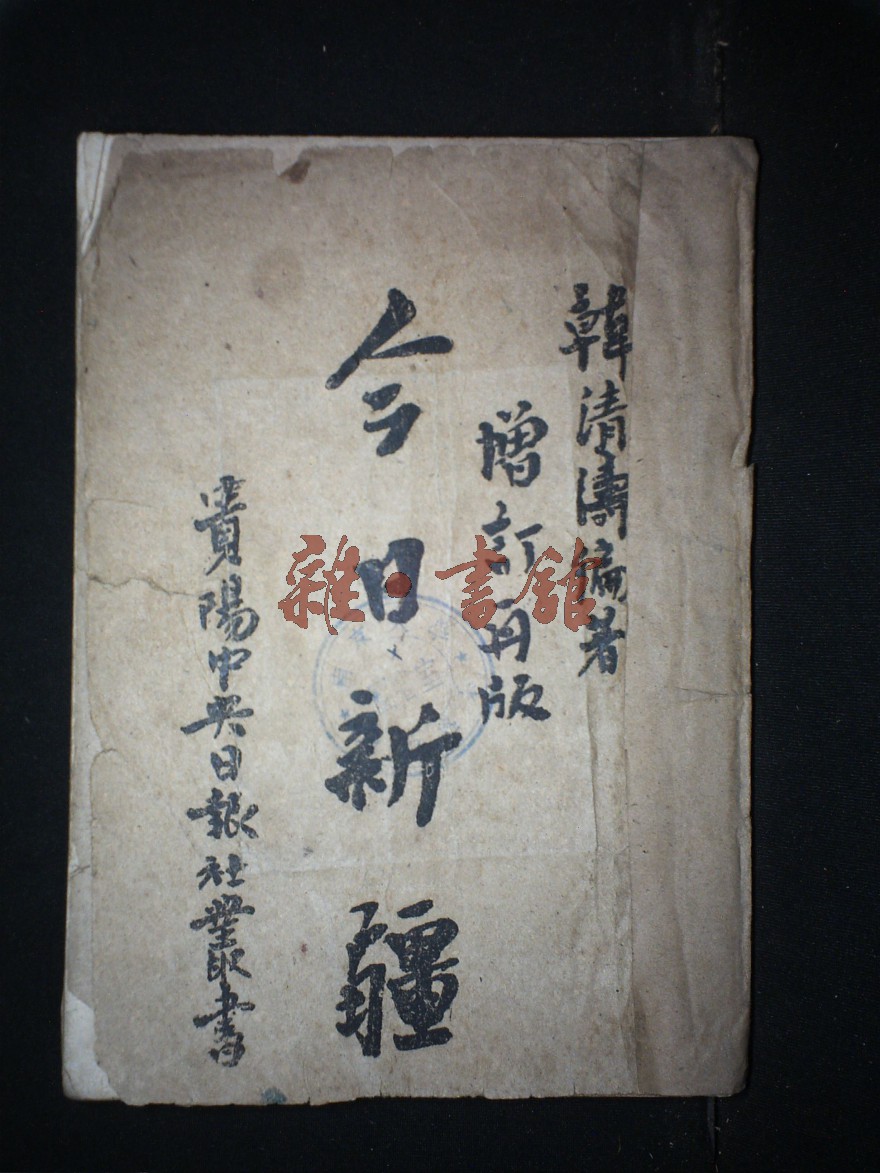 韓清濤編著
增訂再版
今日新疆
貴陽中央日報社叢書
雜·書館